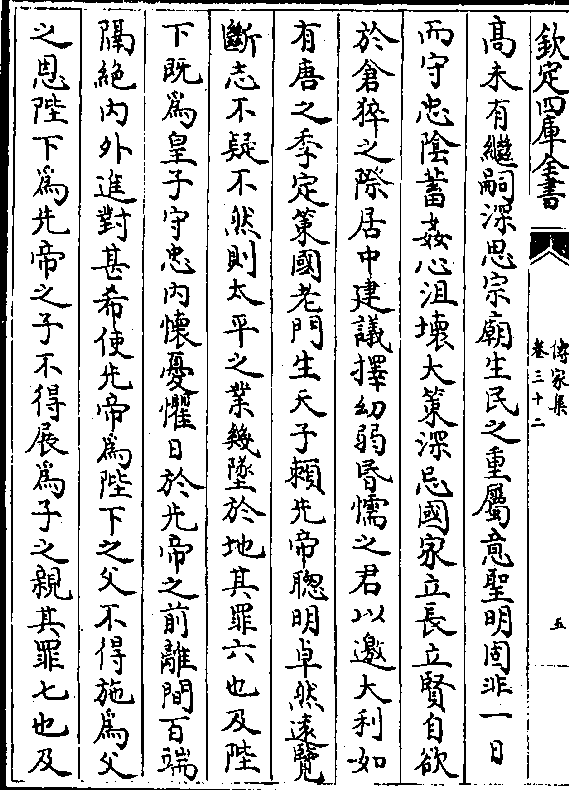 欽定四庫全書
傳家集
卷三十二
五
高未有繼嗣深思宗廟生民之重屬意聖明固非一日
而守忠陰蓄姦心沮壞大策深忌國家立長立賢自欲
於倉猝之際居中建議擇幼弱昏懦之君以邀大利如
有唐之季定策國老門生天子賴先帝聰明卓然逺覽
斷志不疑不然則太平之業幾墜於地其罪六也及陛
下既為皇子守忠内懷憂懼日於先帝之前離間百端
隔絶内外進對甚希使先帝為陛下之父不得施為父
之恩陛下為先帝之子不得展為子之親其罪七也及